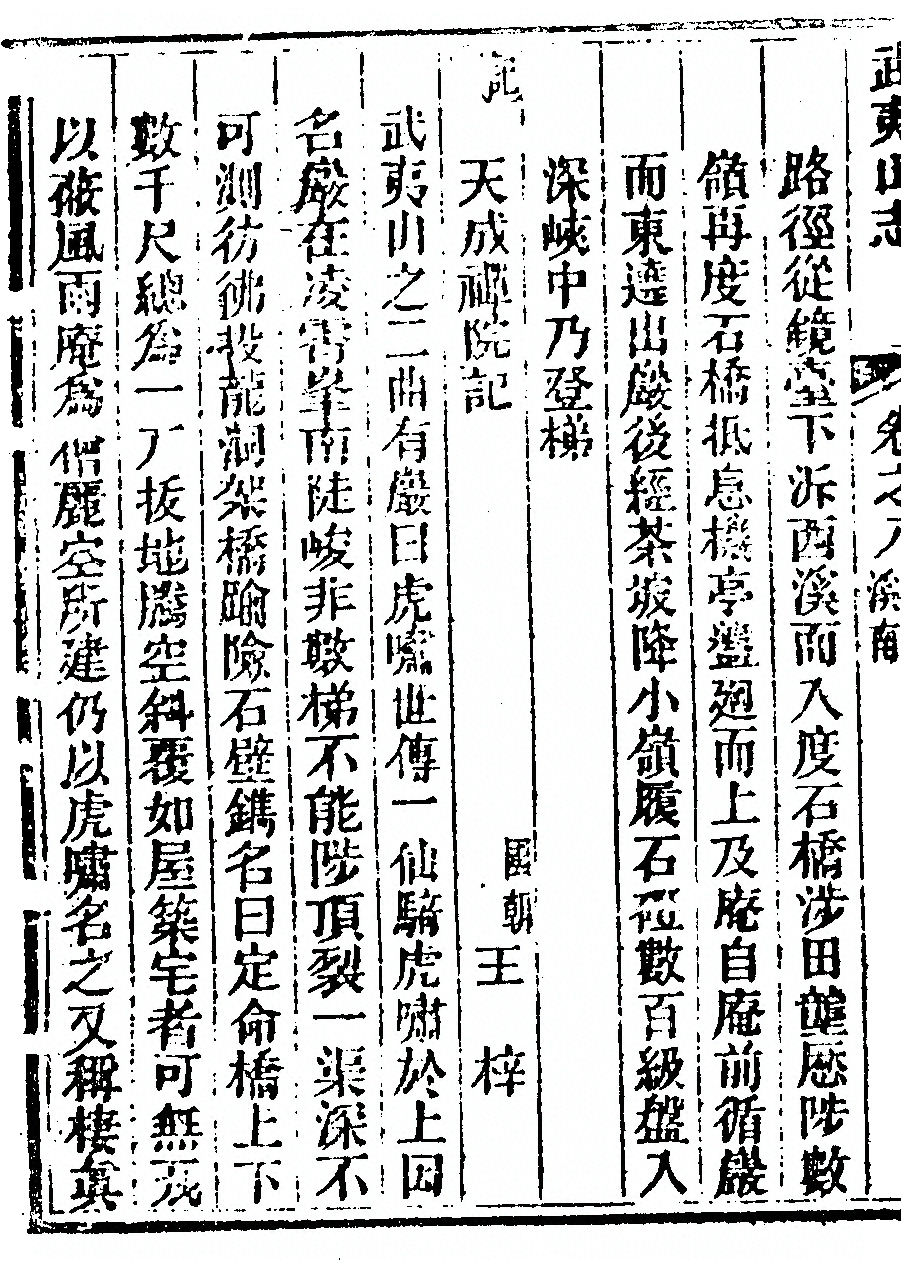 武夷山志 卷之八 溪南
路徑從鏡臺下泝西溪而入度石橋涉田塍歷陟數
嶺再度石橋抵息機亭盤廻而上及庵自庵前循巖
而東遶出巖後經茶坡降小嶺履石磴數百級盤入
深峽中乃登梯
記
天成禪院記 國朝王梓
武夷山之二曲有巖曰虎嘯世傳一仙騎虎嘯於上因
名巖在凌霄峯南陡峻非數梯不能陟頂裂一渠深不
可測彷彿投龍洞架橋踰險石壁鐫名曰定命橋上下
數千尺總爲一厂拔地騰空斜覆如屋築宅者可無茂
以蔽風雨庵爲僧麗空所建仍以虎嘯名之又稱棲眞